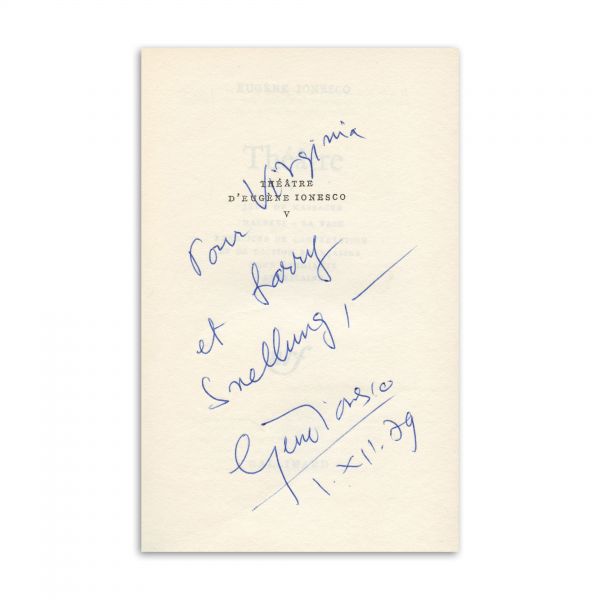 THÉÂTRE
D'EUGÈNE IONESCO
V
Pour Virginia
et Larry
Snellung,
Eugène Ionesco
1.XII.79
EUGÈNE IONESCO
Théâtre
nrf